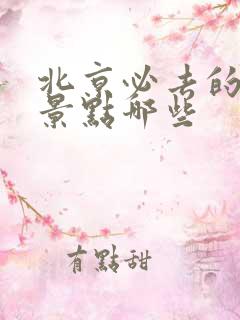 北京必去的
景點那些
有點甜